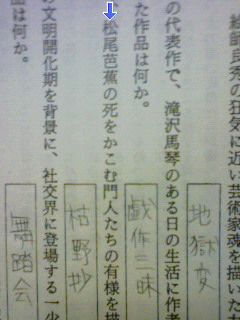 絵師良秀の狂気に近い芸術家魂を描いた
地獄変
の代表作で、滝沢馬琴のある日の生活に作者
た作品は何か。
戯作三昧
松尾芭蕉の死をかこむ門人たちの有様を描
枯野抄
文明開化期を背景に、社交界に登場する一少
品は何か。
舞踏会